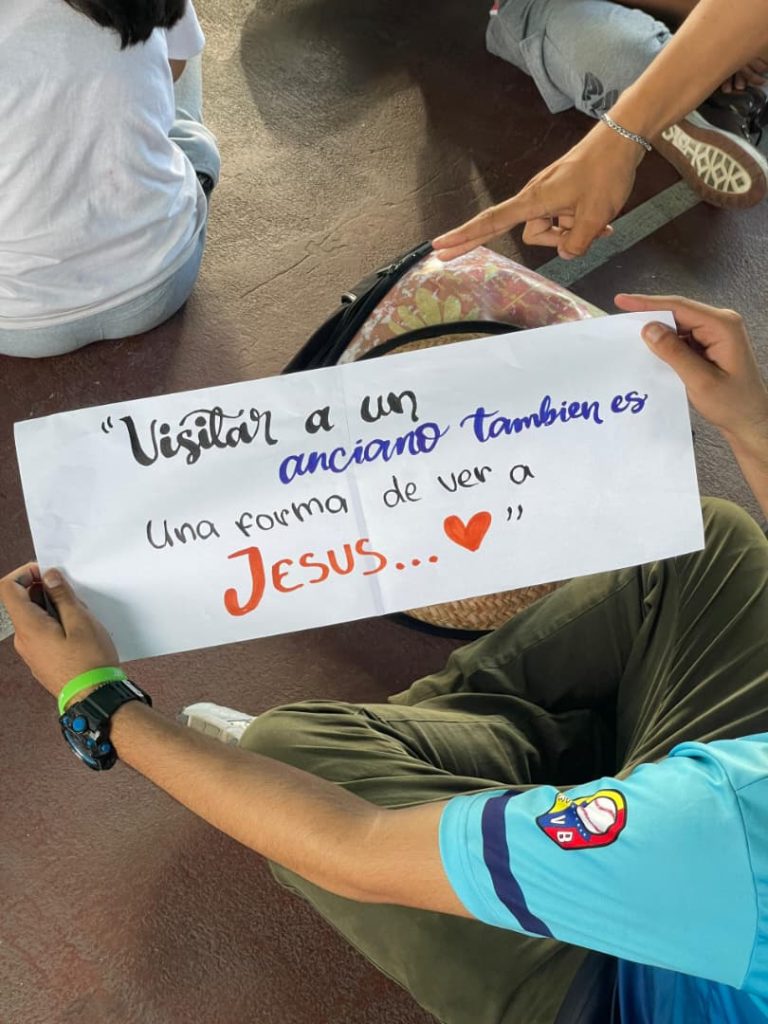 "Visitar a un
anciano tambien es
una forma de ver a
JESUS... ❤"
VB